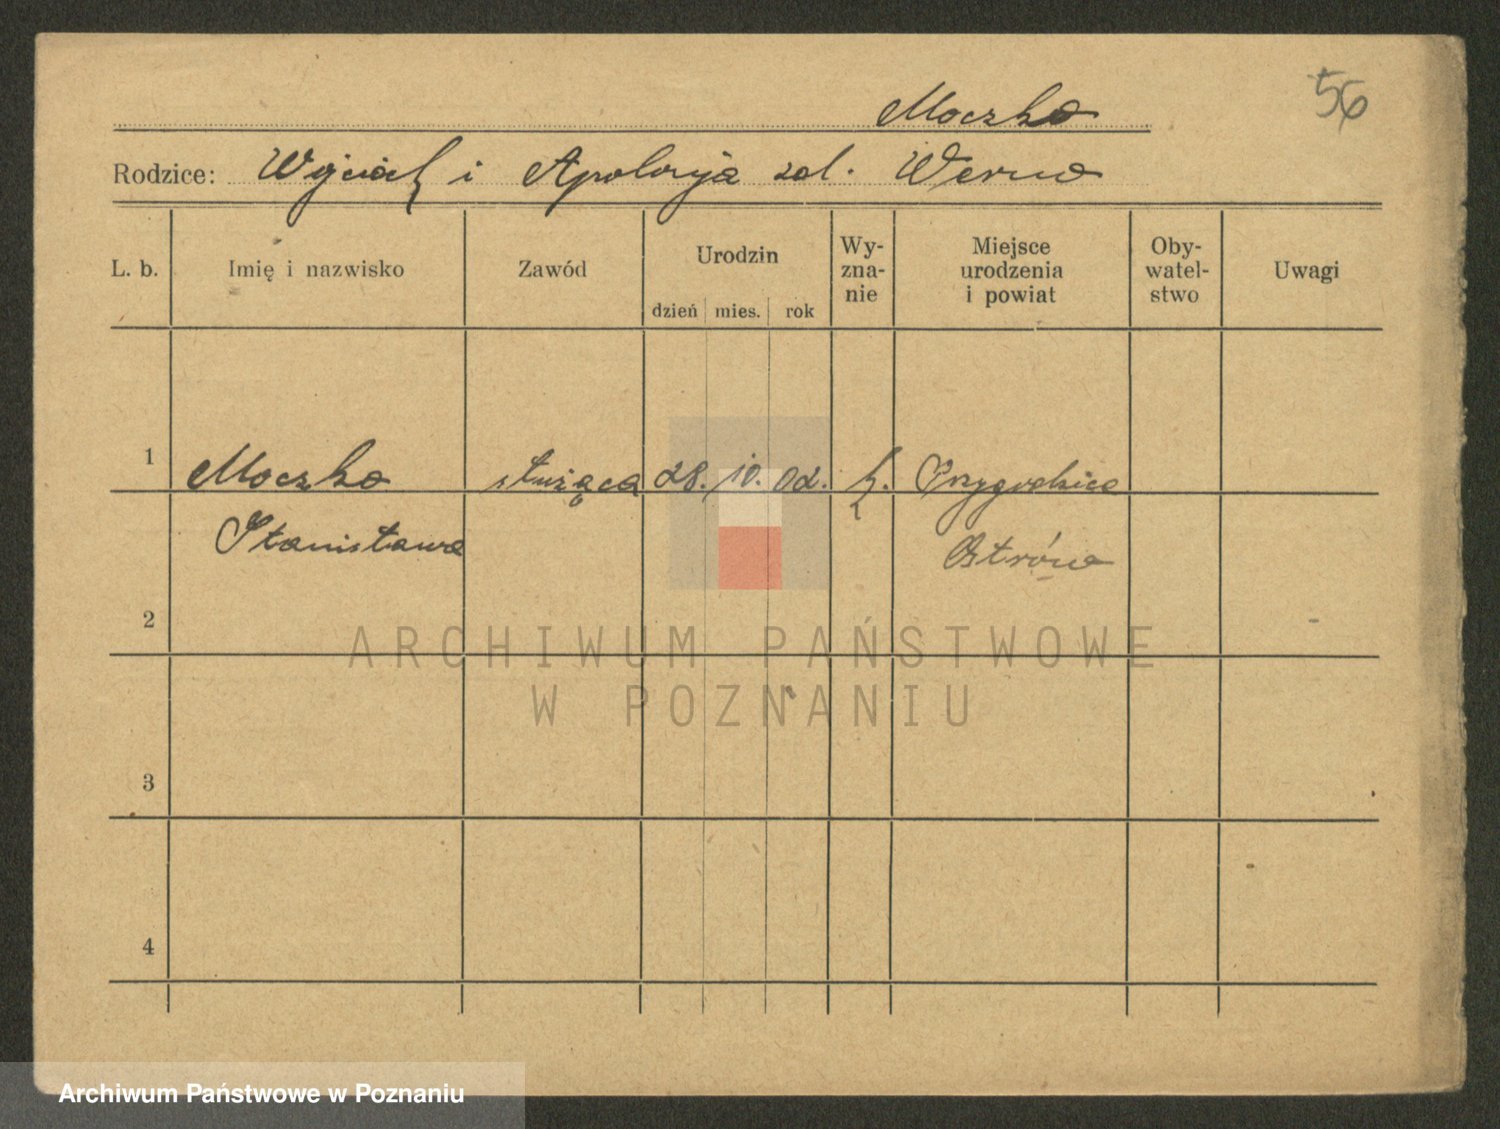 56
Moczko
Rodzice: Wojciech i Apolonja zd. Werno
L. b. Imię i nazwisko Zawód Urodzin dzień mies. rok Wy-zna-nie Miejsce urodzenia i powiat Oby-watel-stwo Uwagi
1 Moczko służąca 28. 10. 02. k. Przygodzice
Stanisława Ostrów
2
ARCHIWUM PAŃSTWOWE
W POZNANIU
3
4
Archiwum Państwowe w Poznaniu